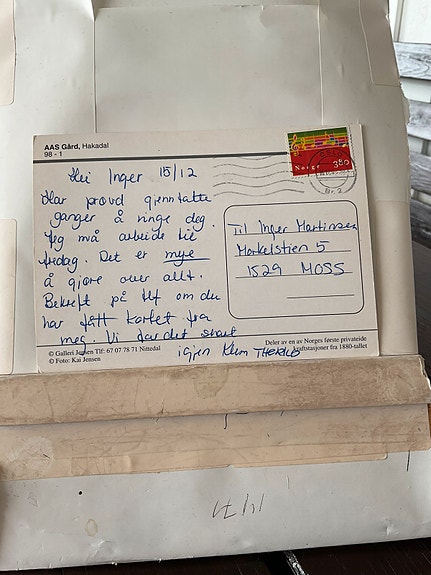 AAS Gård, Hakadal
98 - 1
Norge 380
Br. 2
Hei Inger 15/12
Har prøvd gjenntatte
ganger å ringe deg.
Jeg må arbeide til
fredag. Det er mye
å gjøre over allt.
Bekreft på tlf om du
har fått kortet fra
meg. Vi
igjen Klem
Til Inger Martinsen
Markelstien 5
1529 MOSS
© Galleri Jensen Tlf: 67 07 78 71 Nittedal
© Foto: Kai Jensen
Deler av en av Norges første privateide
kraftstasjoner fra 1880-tallet